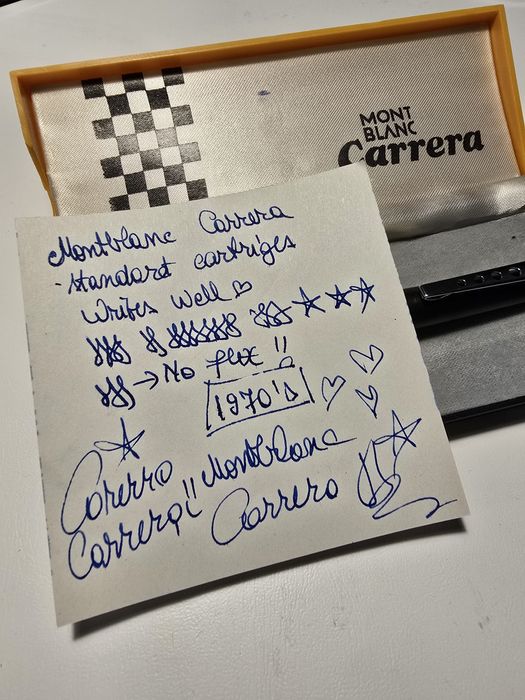 MONT
BLANC
Carrera
Montblanc Carrera
standart cartriges
writes well
→ No flex !!
1970's
Corerro
Montblanc
Carrera!!
Carrero